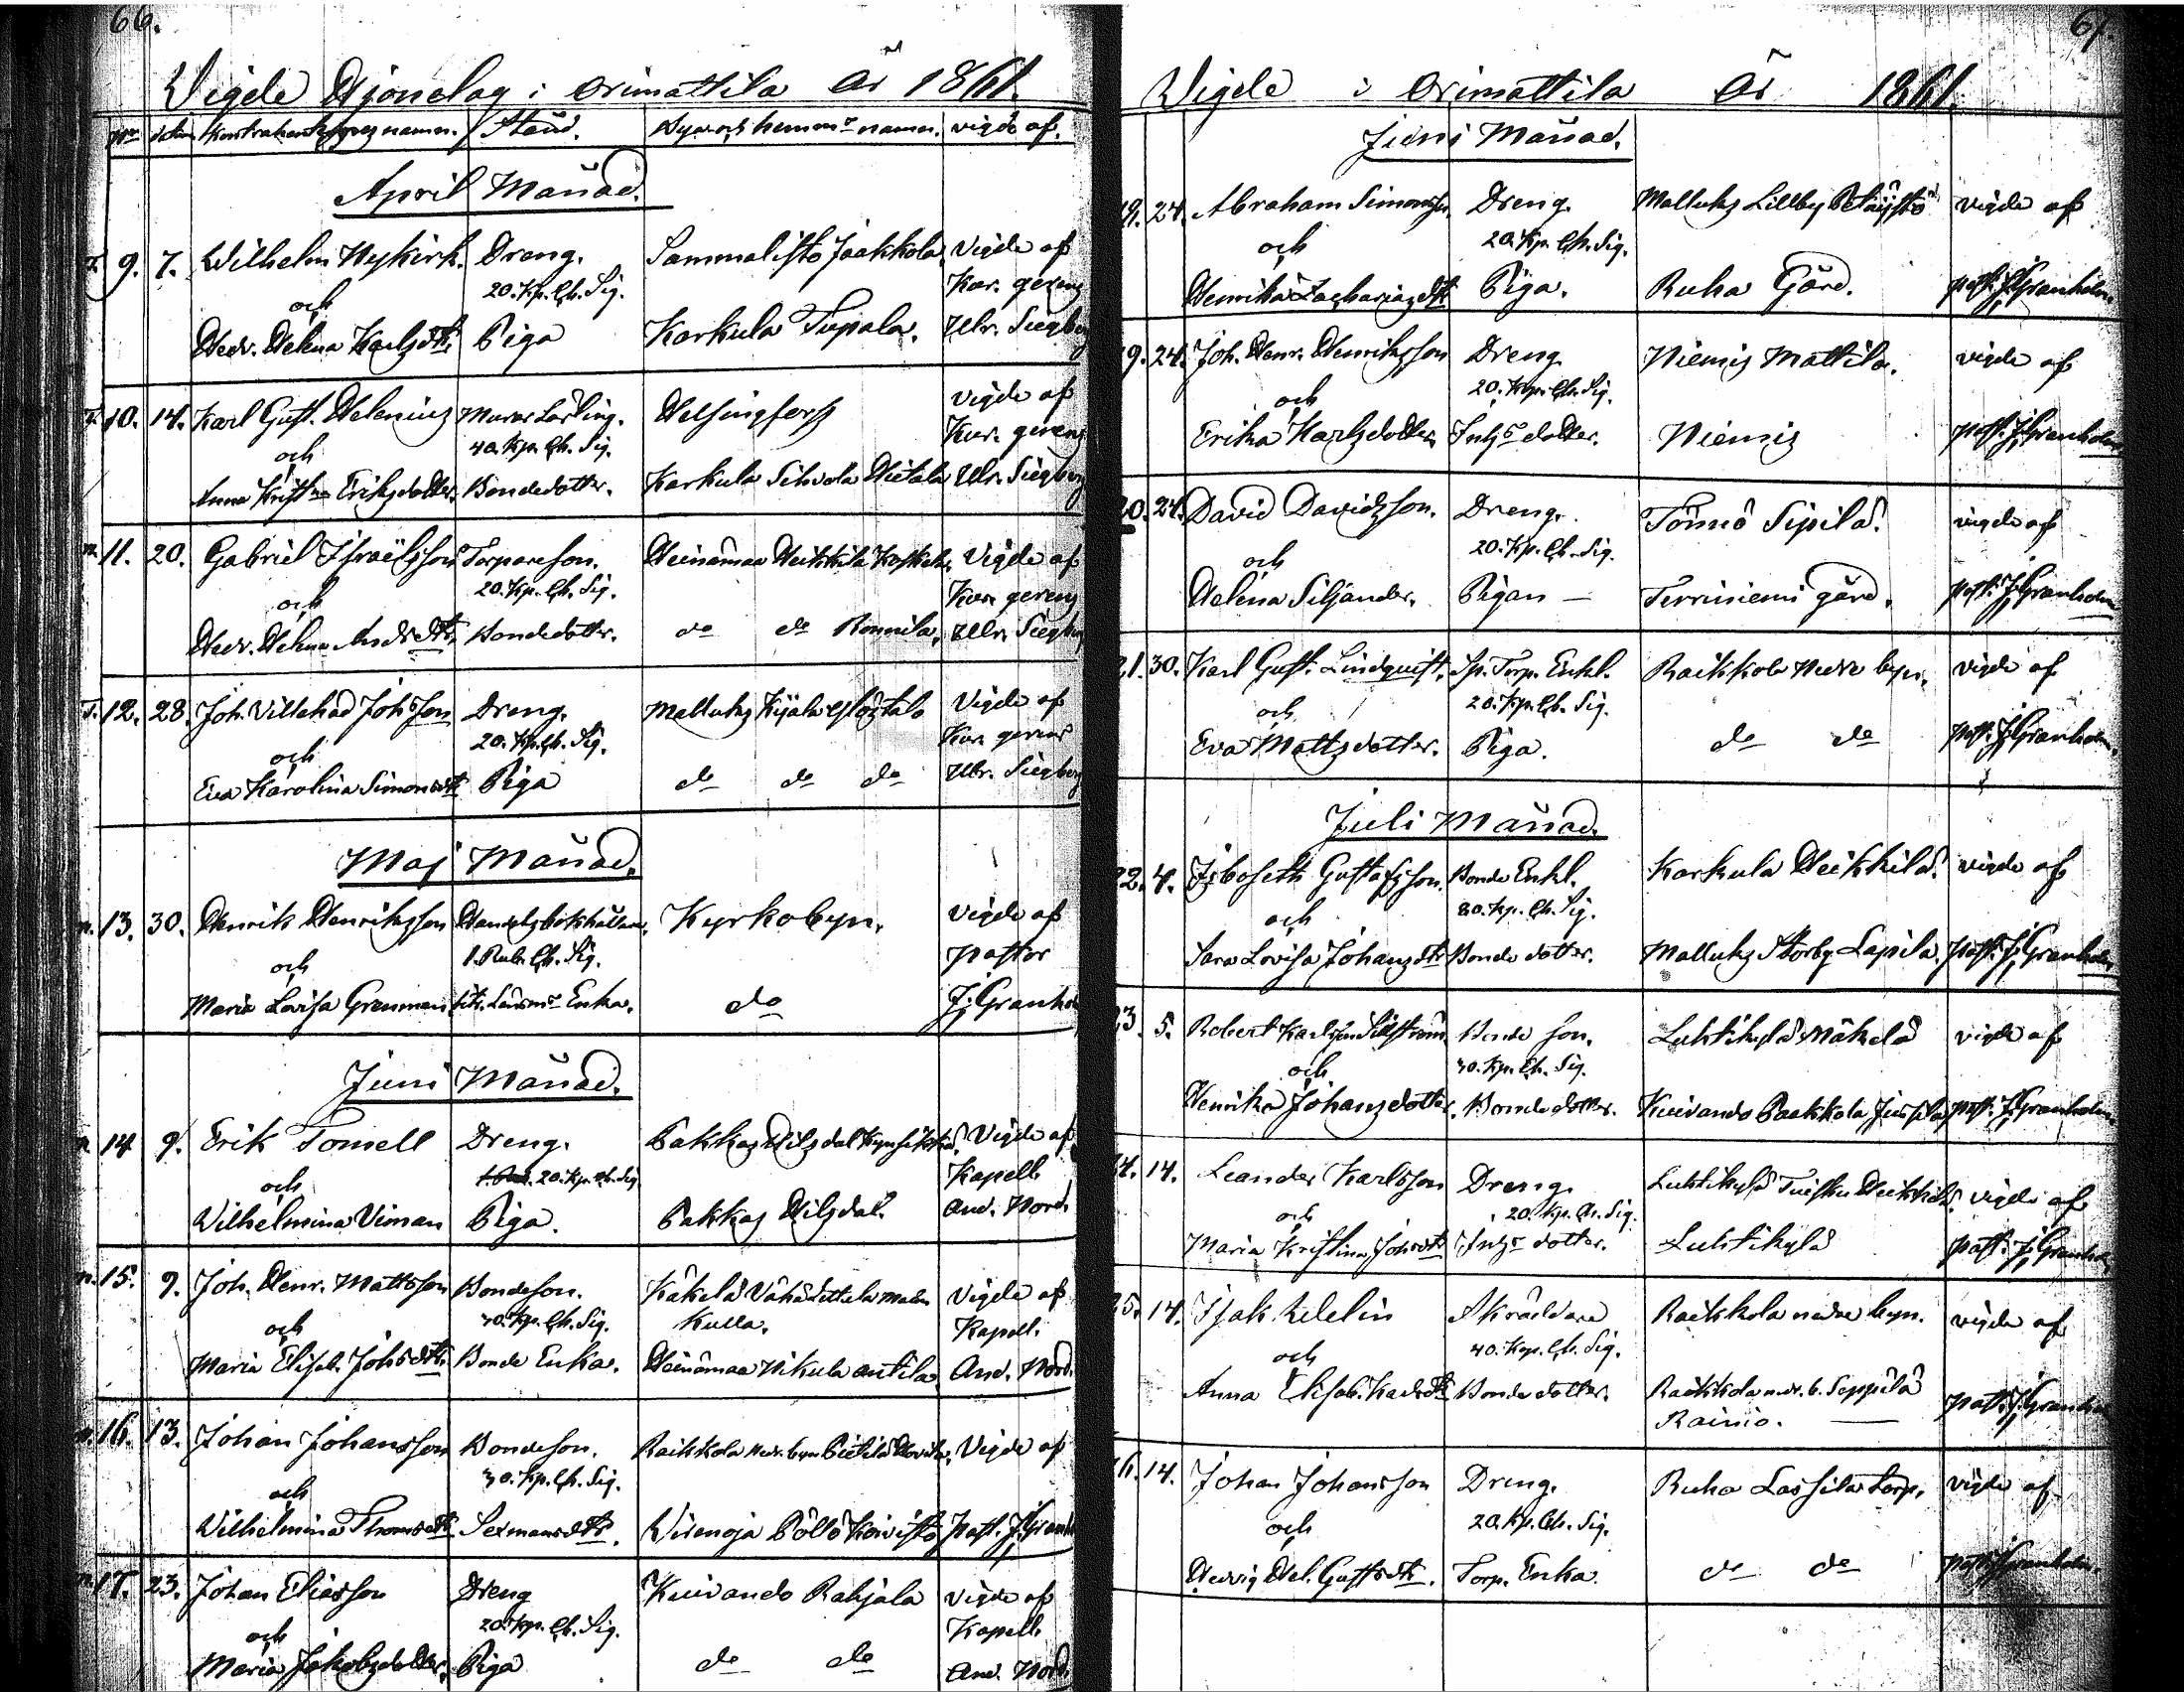 66.
Vigde Hjonelag i Orimattila År 1861.
No datum Kontrahenternes namn. Stånd. Byar och hemms namn. vigde af.
April Månad.
9. 7. Wilhelm Nykirk. Dreng. Sammalisto Jaakkola Vigde af
20. Kp. Ch. Sig. Kur. gerens
och
Hedv. Helena Karlsdtr. Piga Karkula Tupala. Ulr. Siegberg
10. 14. Karl Gust. Helenius Murar Lärling. Helsingfors vigde af
40. Kp. Ch. Sig. Kur. gerens
och
Anna Krist:na Eriksdotter. Bondedotter. Karkula Sihvola Hietala Ulr. Siegberg
11. 20. Gabriel Israelsson Torpareson. Heinämaa Heikkilä Koskela, Vigde af
20. Kp. Ch. Sig. Kur. gerens
och
Hedv. Helena Andrsdtr. Bondedotter. do do Ronnila, Ulr. Siegberg
12. 28. Joh. Villehad Johsson Dreng. Mallusjo Yötalo Vigde af
20. Kp. Ch. Sig. Kur. gerens
och
Eva Karolina Simonsdtr Piga do do do Ulr. Siegberg
Maj Månad.
13. 30. Henrik Henriksson Handelsbokhållare, Kyrkobyn. Vigde af
1. Rub. Ch. Sig. Pastor
och
Maria Lovisa Grenman Länsms Enka. do J. Granholm
Juni Månad.
14 9. Erik Tomell Dreng. Pakkas Hilsdal Vigde af
20. Kp. Ch. Sig. Kapell.
och
Wilhelmina Viman Piga. Pakkas Hilsdal. And. Nord.
15. 9. Joh. Henr. Mattsson Bondeson. Käkelä Vähä Vigde af
30. Kp. Ch. Sig. Kulla. Kapell.
och
Maria Elisab. Johsdtr. Bonde Enka. Heinämaa Nikula Antila And. Nord.
16. 13. Johan Johansson Bondeson. Raikkola Nedr. byn Pietilä Vigde af
30. Kp. Ch. Sig.
och
Wilhelmina Thomsdtr Sexmansdtr. Virenoja Pöllö Koivisto Past. J. Granh
17. 23. Johan Eliasson Dreng Kuivando Rahjala Vigde af
20. Kp. Ch. Sig. Kapell.
och
Maria Jakobsdotter. Piga do do And. Nord.
67.
Vigde i Orimattila År 1861.
Juni Månad.
19. 24. Abraham Simonsson. Dreng. Mallusjo Lillby Petäjistö vigde af
och 20. Kp. Ch. Sig.
Henrika Zachariasdtr Piga. Ruha Gård. past. J. Granholm.
19. 24. Joh. Henr. Henriksson Dreng Niemis Mattila. vigde af
20. Kop. Ch. Sig.
och
Erika Karlsdotter Inhs dotter. Niemis past. J. Granholm
20. 24. David Davidsson. Dreng. Tönnö Sipilä. vigde af
20. Kp. Ch. Sig.
och
Helena Siljander. Pigan — Terriniemi gård. past. J. Granholm
21. 30. Karl Gust. Lindquist. Sp. Torp. Enkl. Raikkola Nedre byn. vigde af
20. Kp. Ch. Sig.
och
Eva Mattsdotter. Piga. do do past. J. Granholm.
Juli Månad.
22. 4. Isboseth Gustafsson. Bonde Enkl. Karkula Heikkilä. vigde af
80. Kp. Ch. Sig.
och
Sara Lovisa Johansdtr Bonde dotter. Mallusjo Storby Lapila. past. J. Granholm
23. 5. Robert Karlsson Bonde son. Luhtikylä Mäkelä vigde af
30. Kp. Ch. Sig.
och
Henrika Johansdotter. Bondedotter. Kuivando Paakkola Jussila past. J. Granholm.
24. 14. Leander Karlsson Dreng. Luhtikylä Tuisku Heikkilä. vigde af
20. Kp. Ch. Sig.
och
Maria Kristina Johsdtr Inhs dotter. Luhtikylä past. J. Granholm
25. 14. Isak Welin Skräddare Raikkola nedre byn. vigde af
40. Kop. Ch. Sig.
och
Anna Elisab. Karlsdtr Bonde dotter. Raikkola nedr. b. Seppälä past. J. Granholm
Rainio. —
26. 14. Johan Johansson Dreng. Ruha Lassila torp. vigde af
20. Kp. Ch. Sig.
och
Hedvig Hel. Gustsdtr. Torp. Enka. do do past. J. Granholm.